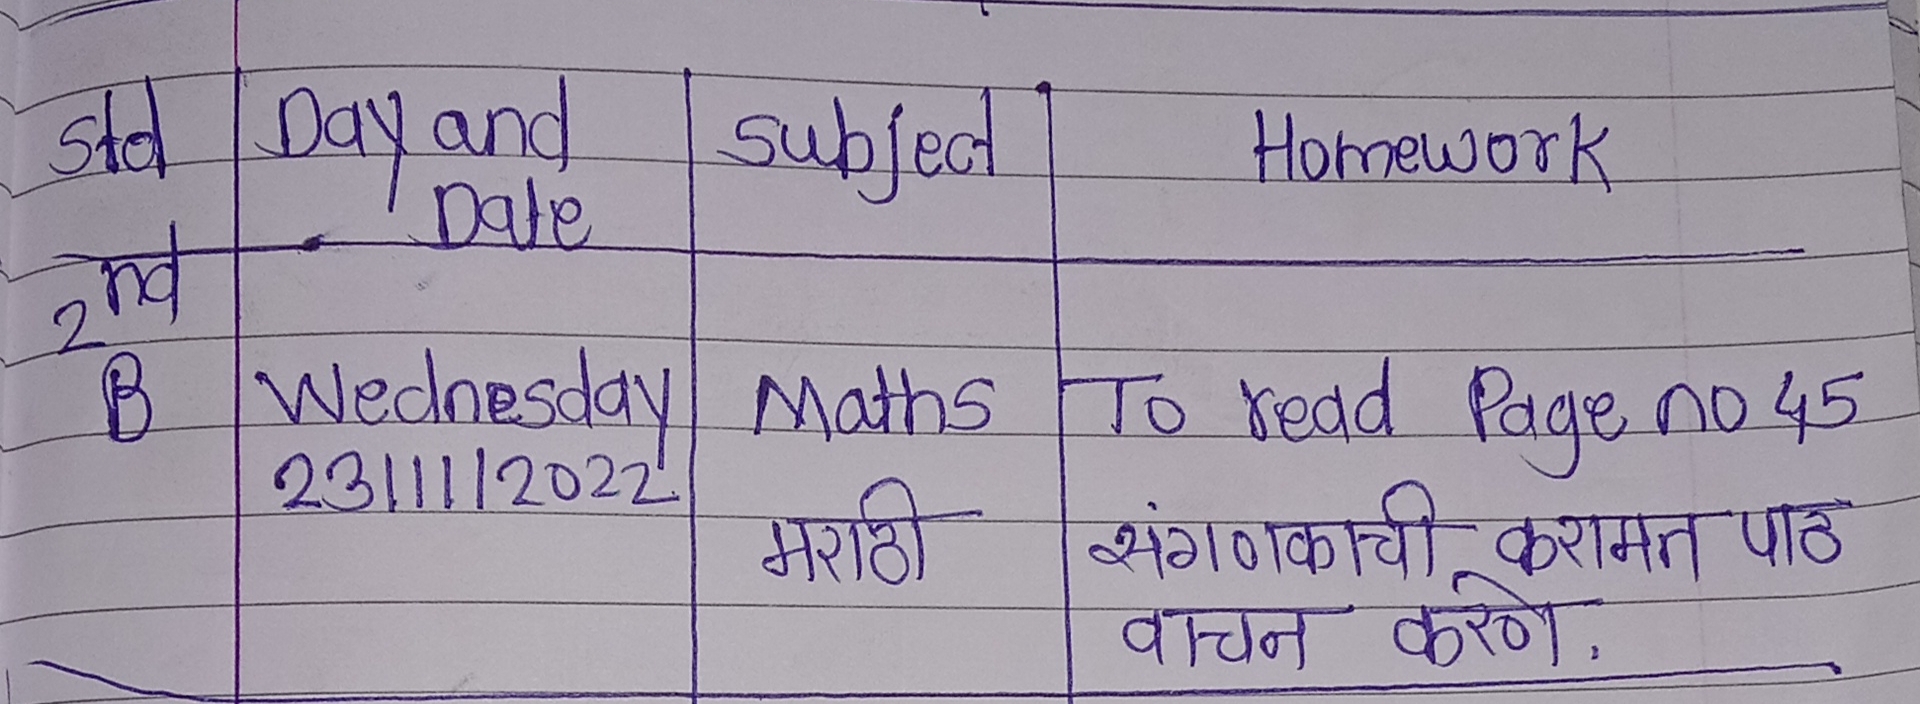 Std Day and Date Subject Homework
2nd
B Wednesday Maths To read Page no 45
23/11/2022
मराठी संगणकाची करामत पाठ
वाचन करणे.